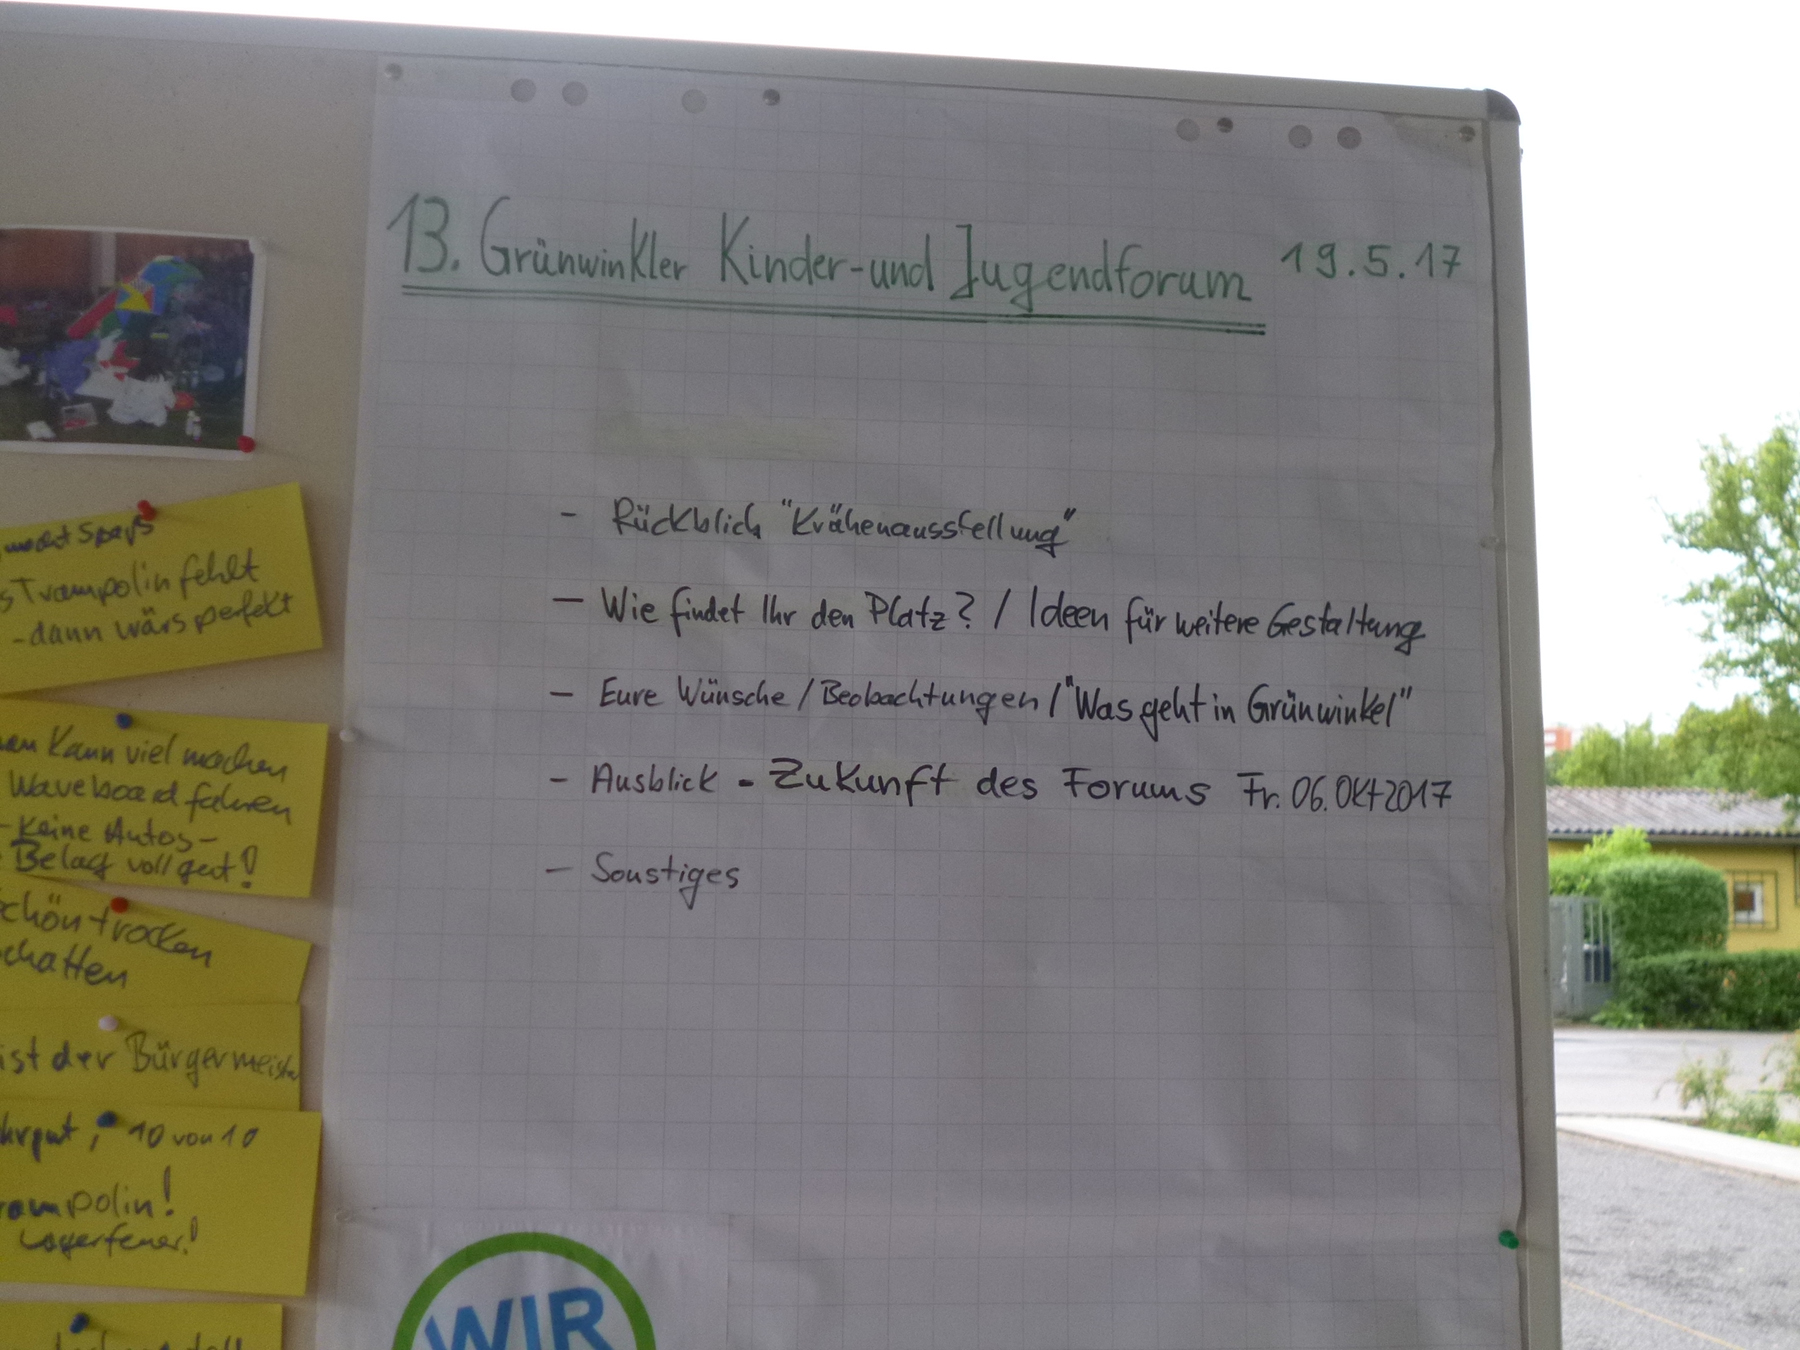 13. Grünwinkler Kinder- und Jugendforum 19.5.17
- Rückblick "Krähenausstellung"
- Wie findet Ihr den Platz? / Ideen für weitere Gestaltung
- Eure Wünsche / Beobachtungen / "Was geht in Grünwinkel"
- Ausblick - Zukunft des Forums Fr. 06. Okt 2017
- Sonstiges
macht Spaß
s Trampolin fehlt
- dann wärs perfekt
kann viel machen
Waveboard fahren
- Keine Autos -
- Belag voll gut!
chön trocken
chatten
ist der Bürgermeiste
10 von 10
rampolin!
Lagerfeuer!
WIR